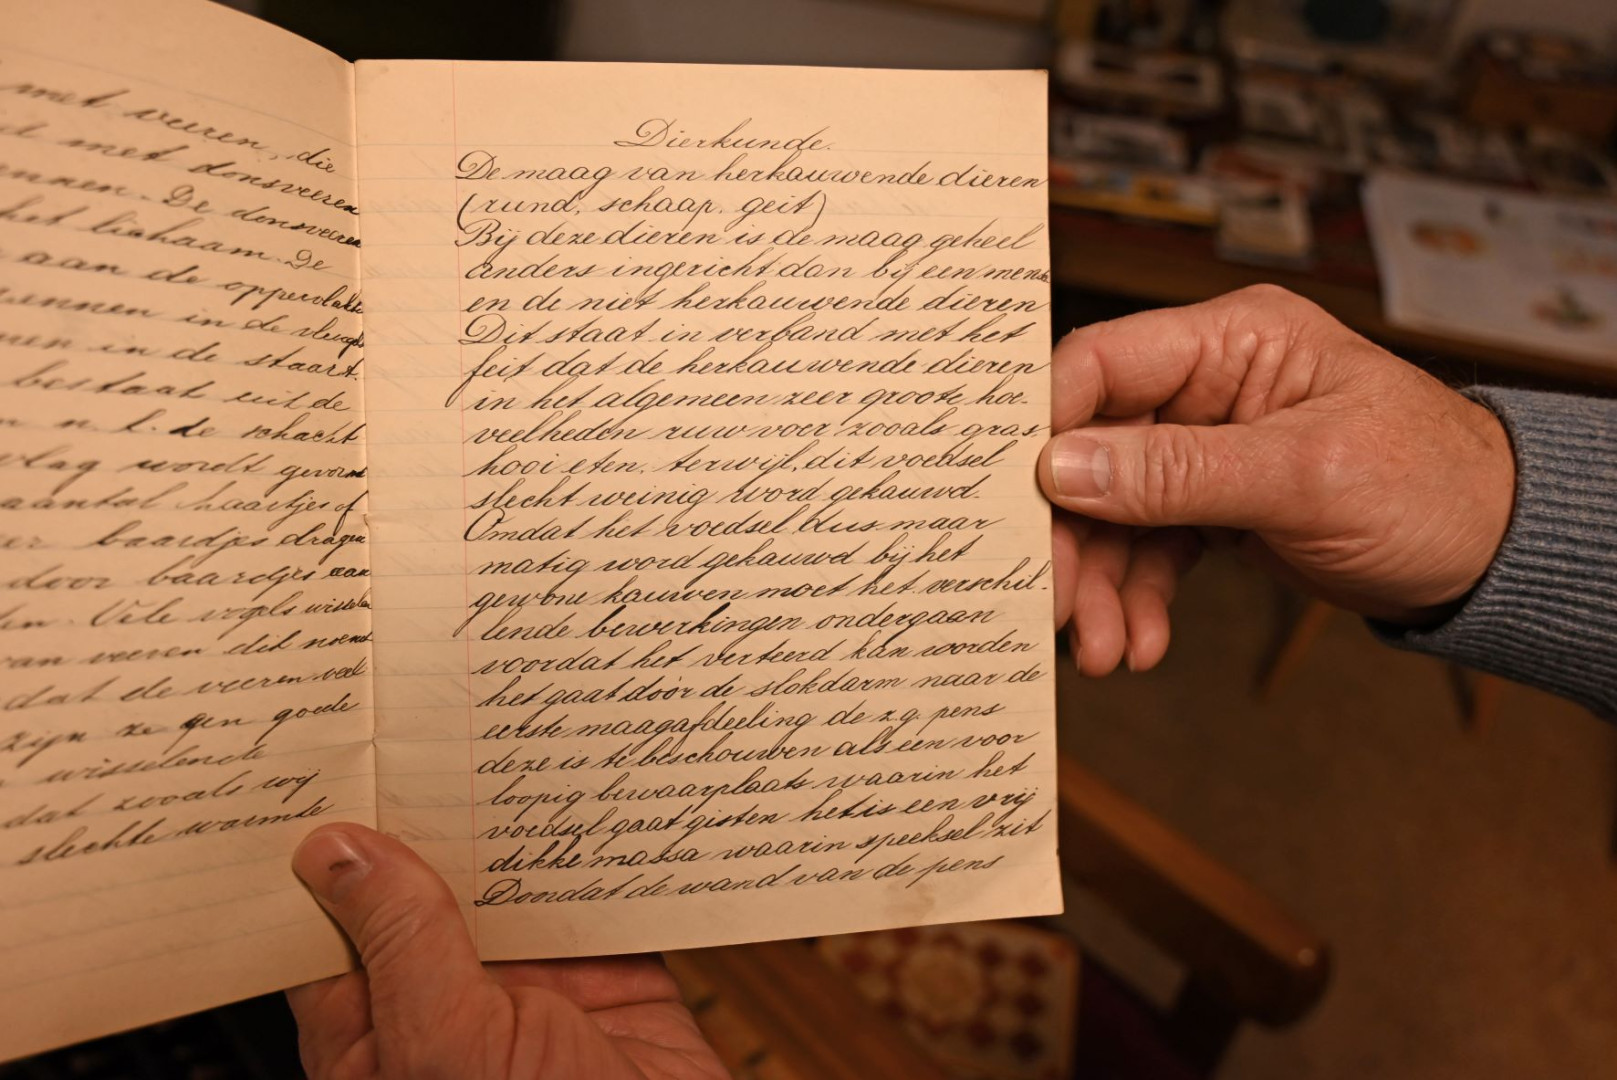 met veeren, die
met donsveeren
ennen. De donsveeren
het lichaam. De
aan de oppervlakte
ennen in de vleugels
en in de staart.
bestaat uit de
n. l. de schacht
vlag wordt gevormd
aantal haartjes of
er baardjes dragen
door baardjes aan
Vele vogels wisselen
van veeren dit noemt
dat de veeren veel
zijn ze gen goede
wisselende
dat zooals wij
slechte warmte
Dierkunde.
De maag van herkauwende dieren
(rund, schaap, geit)
Bij deze dieren is de maag geheel
anders ingericht dan bij een mensch
en de niet herkauwende dieren
Dit staat in verband met het
feit dat de herkauwende dieren
in het algemeen zeer groote hoe-
veelheden ruwvoer zooals gras.
hooi eten. terwijl, dit voedsel
slecht weinig word gekauwd.
Omdat het voedsel dus maar
matig word gekauwd bij het
gewone kauwen moet het verschil-
lende bewerkingen ondergaan
voordat het verteerd kan worden
het gaat dóór de slokdarm naar de
eerste maagafdeeling de z.g. pens
deze is te beschouwen als een voor
loopig bewaarplaats waarin het
voedsel gaat gisten het is een vrij
dikke massa waarin speeksel zit
Doordat de wand van de pens